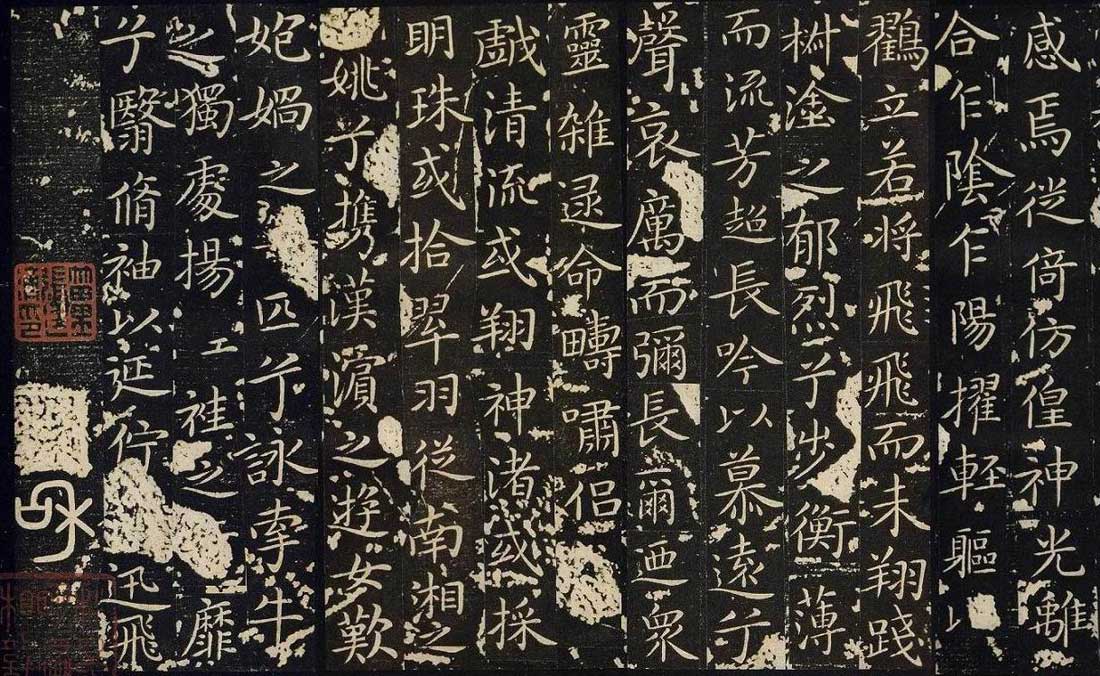 感焉徙倚彷徨神光離
合乍陰乍陽擢輕軀以
鸖立若將飛飛而未翔踐
椒塗之郁烈兮步衡薄
而流芳超長吟以慕遠兮
聲哀厲而彌長爾迺衆
靈雜遝命疇嘯侶
戲清流或翔神渚或採
明珠或拾翠羽從南湘之
姚兮攜漢濱之遊女歎
媧之匹兮詠牽牛
之獨處揚袿之靡
兮翳脩袖以延佇迅飛